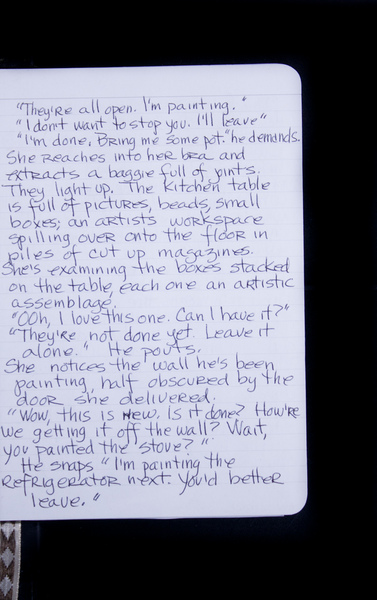 "They're all open. I'm painting."
"I don't want to stop you. I'll leave"
"I'm done. Bring me some pot." he demands.
She reaches into her bra and
extracts a baggie full of joints.
They light up. The kitchen table
is full of pictures, beads, small
boxes; an artists workspace
spilling over onto the floor in
piles of cut up magazines.
She's examining the boxes stacked
on the table, each one an artistic
assemblage.
"Ooh, I love this one. Can I have it?"
"They're not done yet. Leave it
alone." He pouts.
She notices the wall he's been
painting, half obscured by the
door she delivered.
"Wow, this is new. Is it done? How're
we getting it off the wall? Wait,
you painted the stove?"
He snaps "I'm painting the
refrigerator next. You'd better
leave."